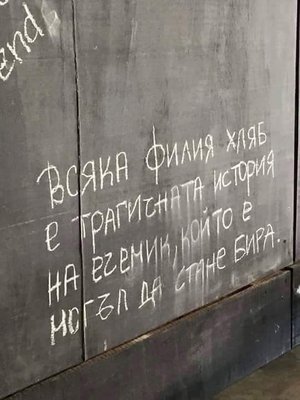 end
ВСЯКА ФИЛИЯ ХЛЯБ
е ТРАГИЧНАТА ИСТОРИЯ
НА ЕЧЕМИК, КОЙТО Е
МОГЪЛ ДА СТАНЕ БИРА.